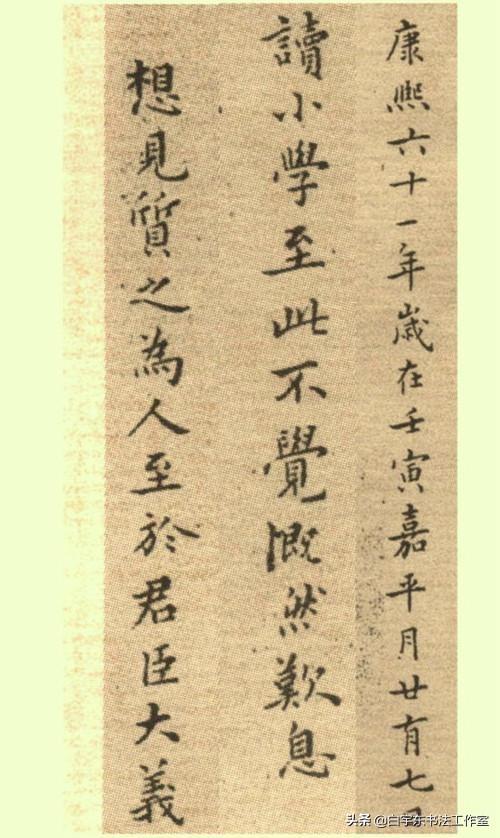 康熙六十一年歲在壬寅嘉平月廿有七日
讀小學至此不覺慨然歎息
想見質之為人至於君臣大義
头条 @白宇东书法工作室